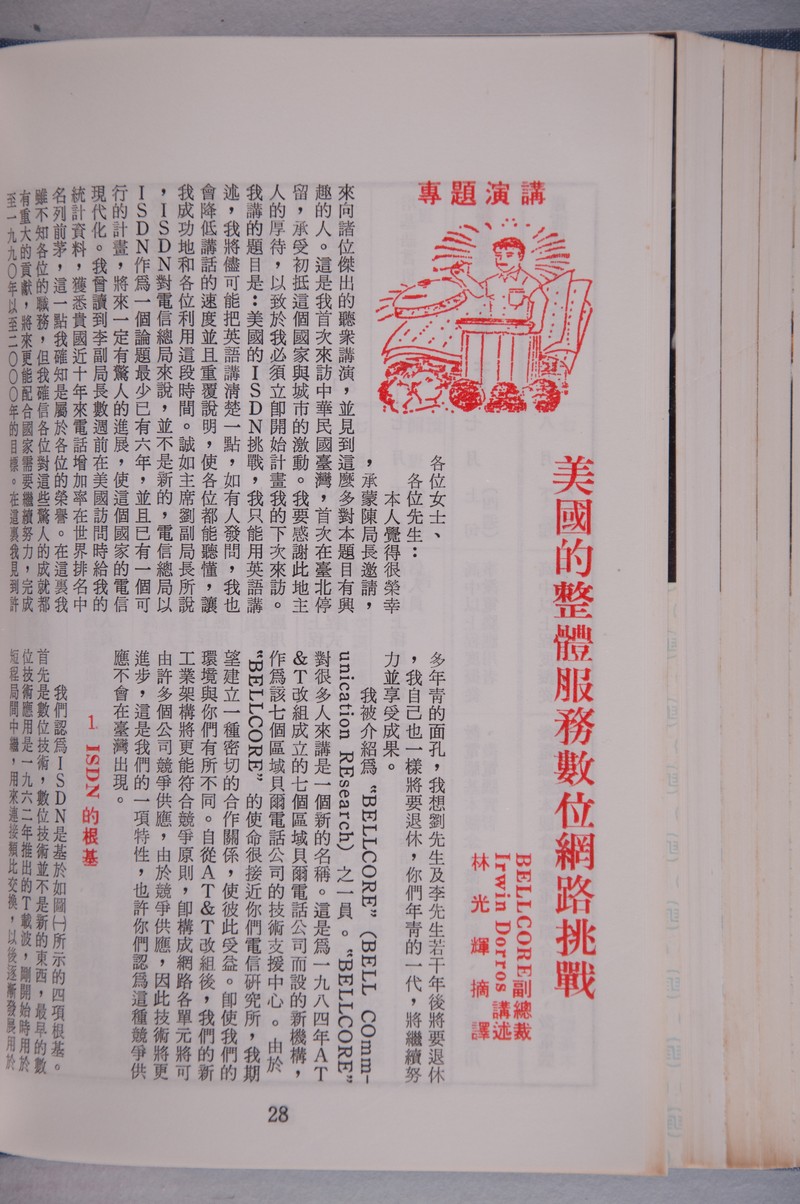 專題演講
美國的整體服務數位網路挑戰
BELLCORE副總裁
Irwin Dorros 講述
林光輝 摘譯
各位女士、
各位先生：
本人覺得很榮幸
，承蒙陳局長邀請，
來向諸位傑出的聽衆講演，並見到這麼多對本題目有興
趣的人。這是我首次來訪中華民國臺灣，首次在臺北停
留，承受初抵這個國家與城市的激動。我要感謝此地主
人的厚待，以致於我必須立卽開始計畫我的下次來訪。
我講的題目是：美國的ISDN挑戰，我只能用英語講
述，我將儘可能把英語講淸楚一點，如有人發問，我也
會降低講話的速度並且重覆說明，使各位都能聽懂，讓
我成功地和各位利用這段時間。誠如主席劉副局長所說
，ISDN對電信總局來說，並不是新的，電信總局以
ISDN作爲一個論題最少已有六年，並且已有一個可
行的計畫，將來一定有驚人的進展，使這個國家的電信
現代化。我曾讀到李副局長數週前在美國訪問時給我的
統計資料，獲悉貴國近十年來電話增加率在世界排名中
名列前茅，這一點我確知是屬於各位的榮譽。在這裏我
雖不知各位的職務，但我確信各位對這些驚人的成就都
有重大的貢獻，將來更能配合國家需要繼續努力，完成
至一九九〇年以至二〇〇〇年的目標。在這裏我見到許
多年靑的面孔，我想劉先生及李先生若干年後將要退休
，我自己也一樣將要退休，你們年靑的一代，將繼續努
力並享受成果。
我被介紹爲“BELLCORE”（BELL COmm-
unication REsearch）之一員。“BELLCORE”
對很多人來講是一個新的名稱。這是爲一九八四年AT
&T改組成立的七個區域貝爾電話公司而設的新機構，
作爲該七個區域貝爾電話公司的技術支援中心。由於
“BELLCORE”的使命很接近你們電信研究所，我期
望建立一種密切的合作關係，使彼此受益。卽使我們的
環境與你們有所不同。自從AT&T改組後，我們的新
工業架構將更能符合競爭原則，卽構成網路各單元將可
由許多個公司競爭供應，由於競爭供應，因此技術將更
進步，這是我們的一項特性，也許你們認爲這種競爭供
應不會在臺灣出現。
1. ISDN的根基
我們認爲ISDN是基於如圖㈠所示的四項根基。
首先是數位技術，數位技術並不是新的東西，最早的數
位技術應用是一九六二年推出的T載波，剛開始時用於
短程局間中繼，用來連接類比交換，以後逐漸發展用於
28